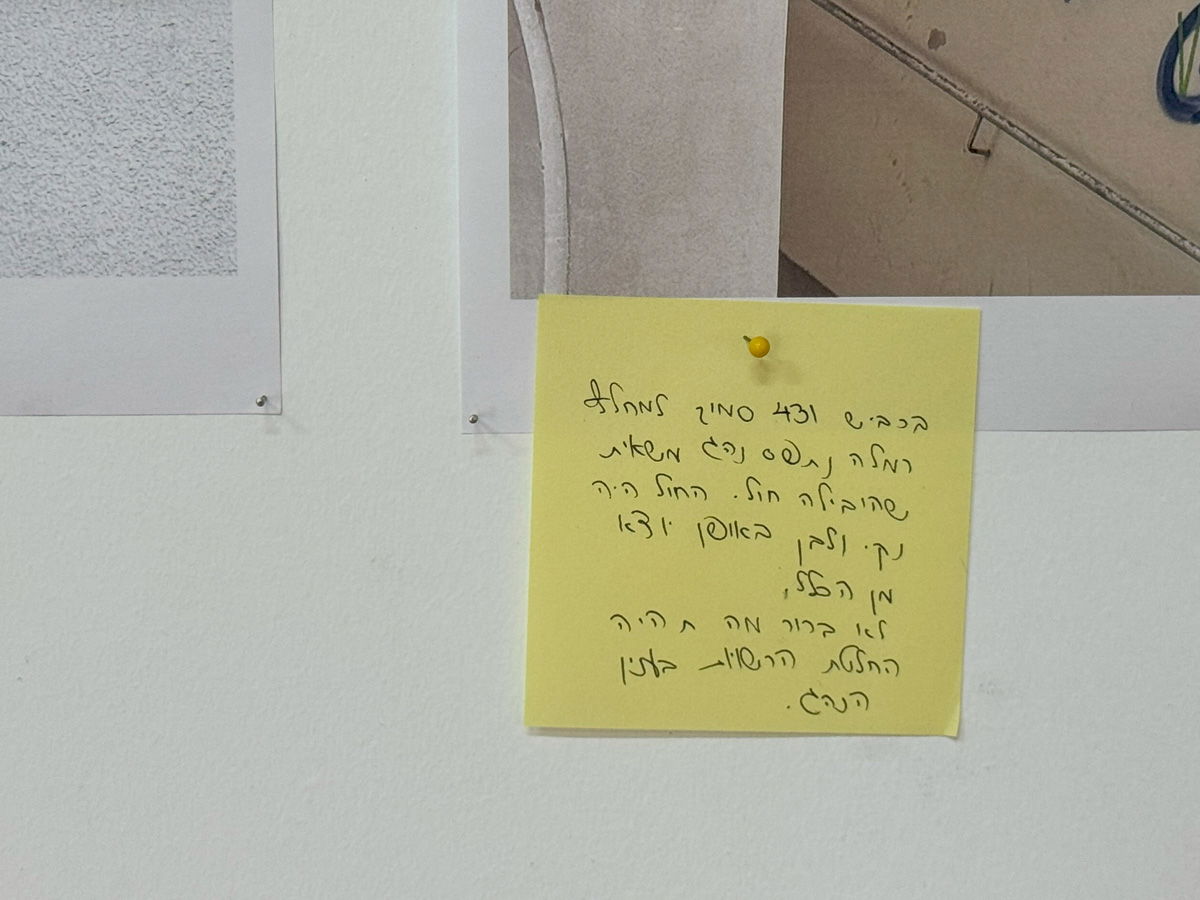 בכביש 431 סמוך למחלף
רמלה נתפס נהג משאית
שהובילה חול. החול היה
נקי ולבן באופן יוצא
מן הכלל.
לא ברור מה תהיה
החלטת הרשויות בענין
הנהג.